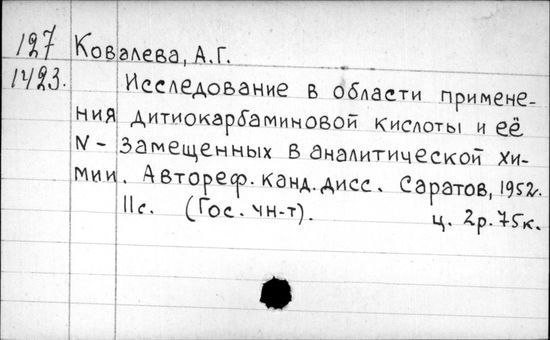 127 Ковалева, А.Г.
1423. Исследование в области примене-
ния дитиокарбаминовой кислоты и её
N - замещенных в аналитической хи-
мии. Автореф. канд. дисс. Саратов, 1952.
11с. (Гос. чн-т). ц. 2р. 75к.